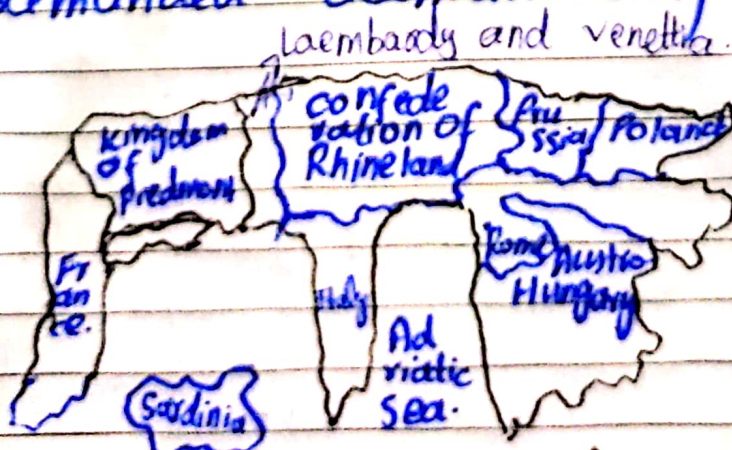 Laembaady and venettira.
Kingdom
of
Predmont
confede
ration of
Rhineland
Pru
ssia
Poland
Fr
an
ce.
Italy
Ad
riatic
Sea.
Rome
Austro
Hungary
Sardinia